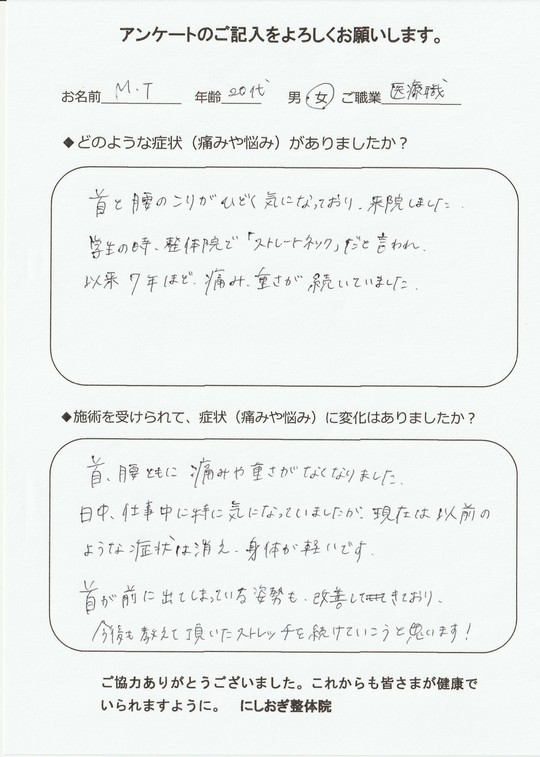 アンケートのご記入をよろしくお願いします。
お名前 M・T 年齢 20代 男・女 ご職業 医療職
◆どのような症状（痛みや悩み）がありましたか？
首と腰のこりがひどく気になっており、来院しました。
学生の時、整体院で「ストレートネック」だと言われ、
以来7年ほど、痛み、重さが続いていました。
◆施術を受けられて、症状（痛みや悩み）に変化はありましたか？
首、腰ともに痛みや重さがなくなりました。
日中、仕事中に特に気になっていましたが、現在は以前の
ような症状は消え、身体が軽いです。
首が前に出てしまっている姿勢も、改善してきており、
今後も教えて頂いたストレッチを続けていこうと思います！
ご協力ありがとうございました。これからも皆さまが健康で
いられますように。 にしおぎ整体院